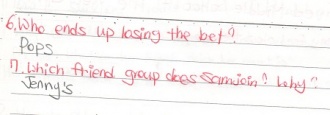 6. Who ends up losing the bet?
Pops
7. Which friend group does Sam join? Why?
Jenny's